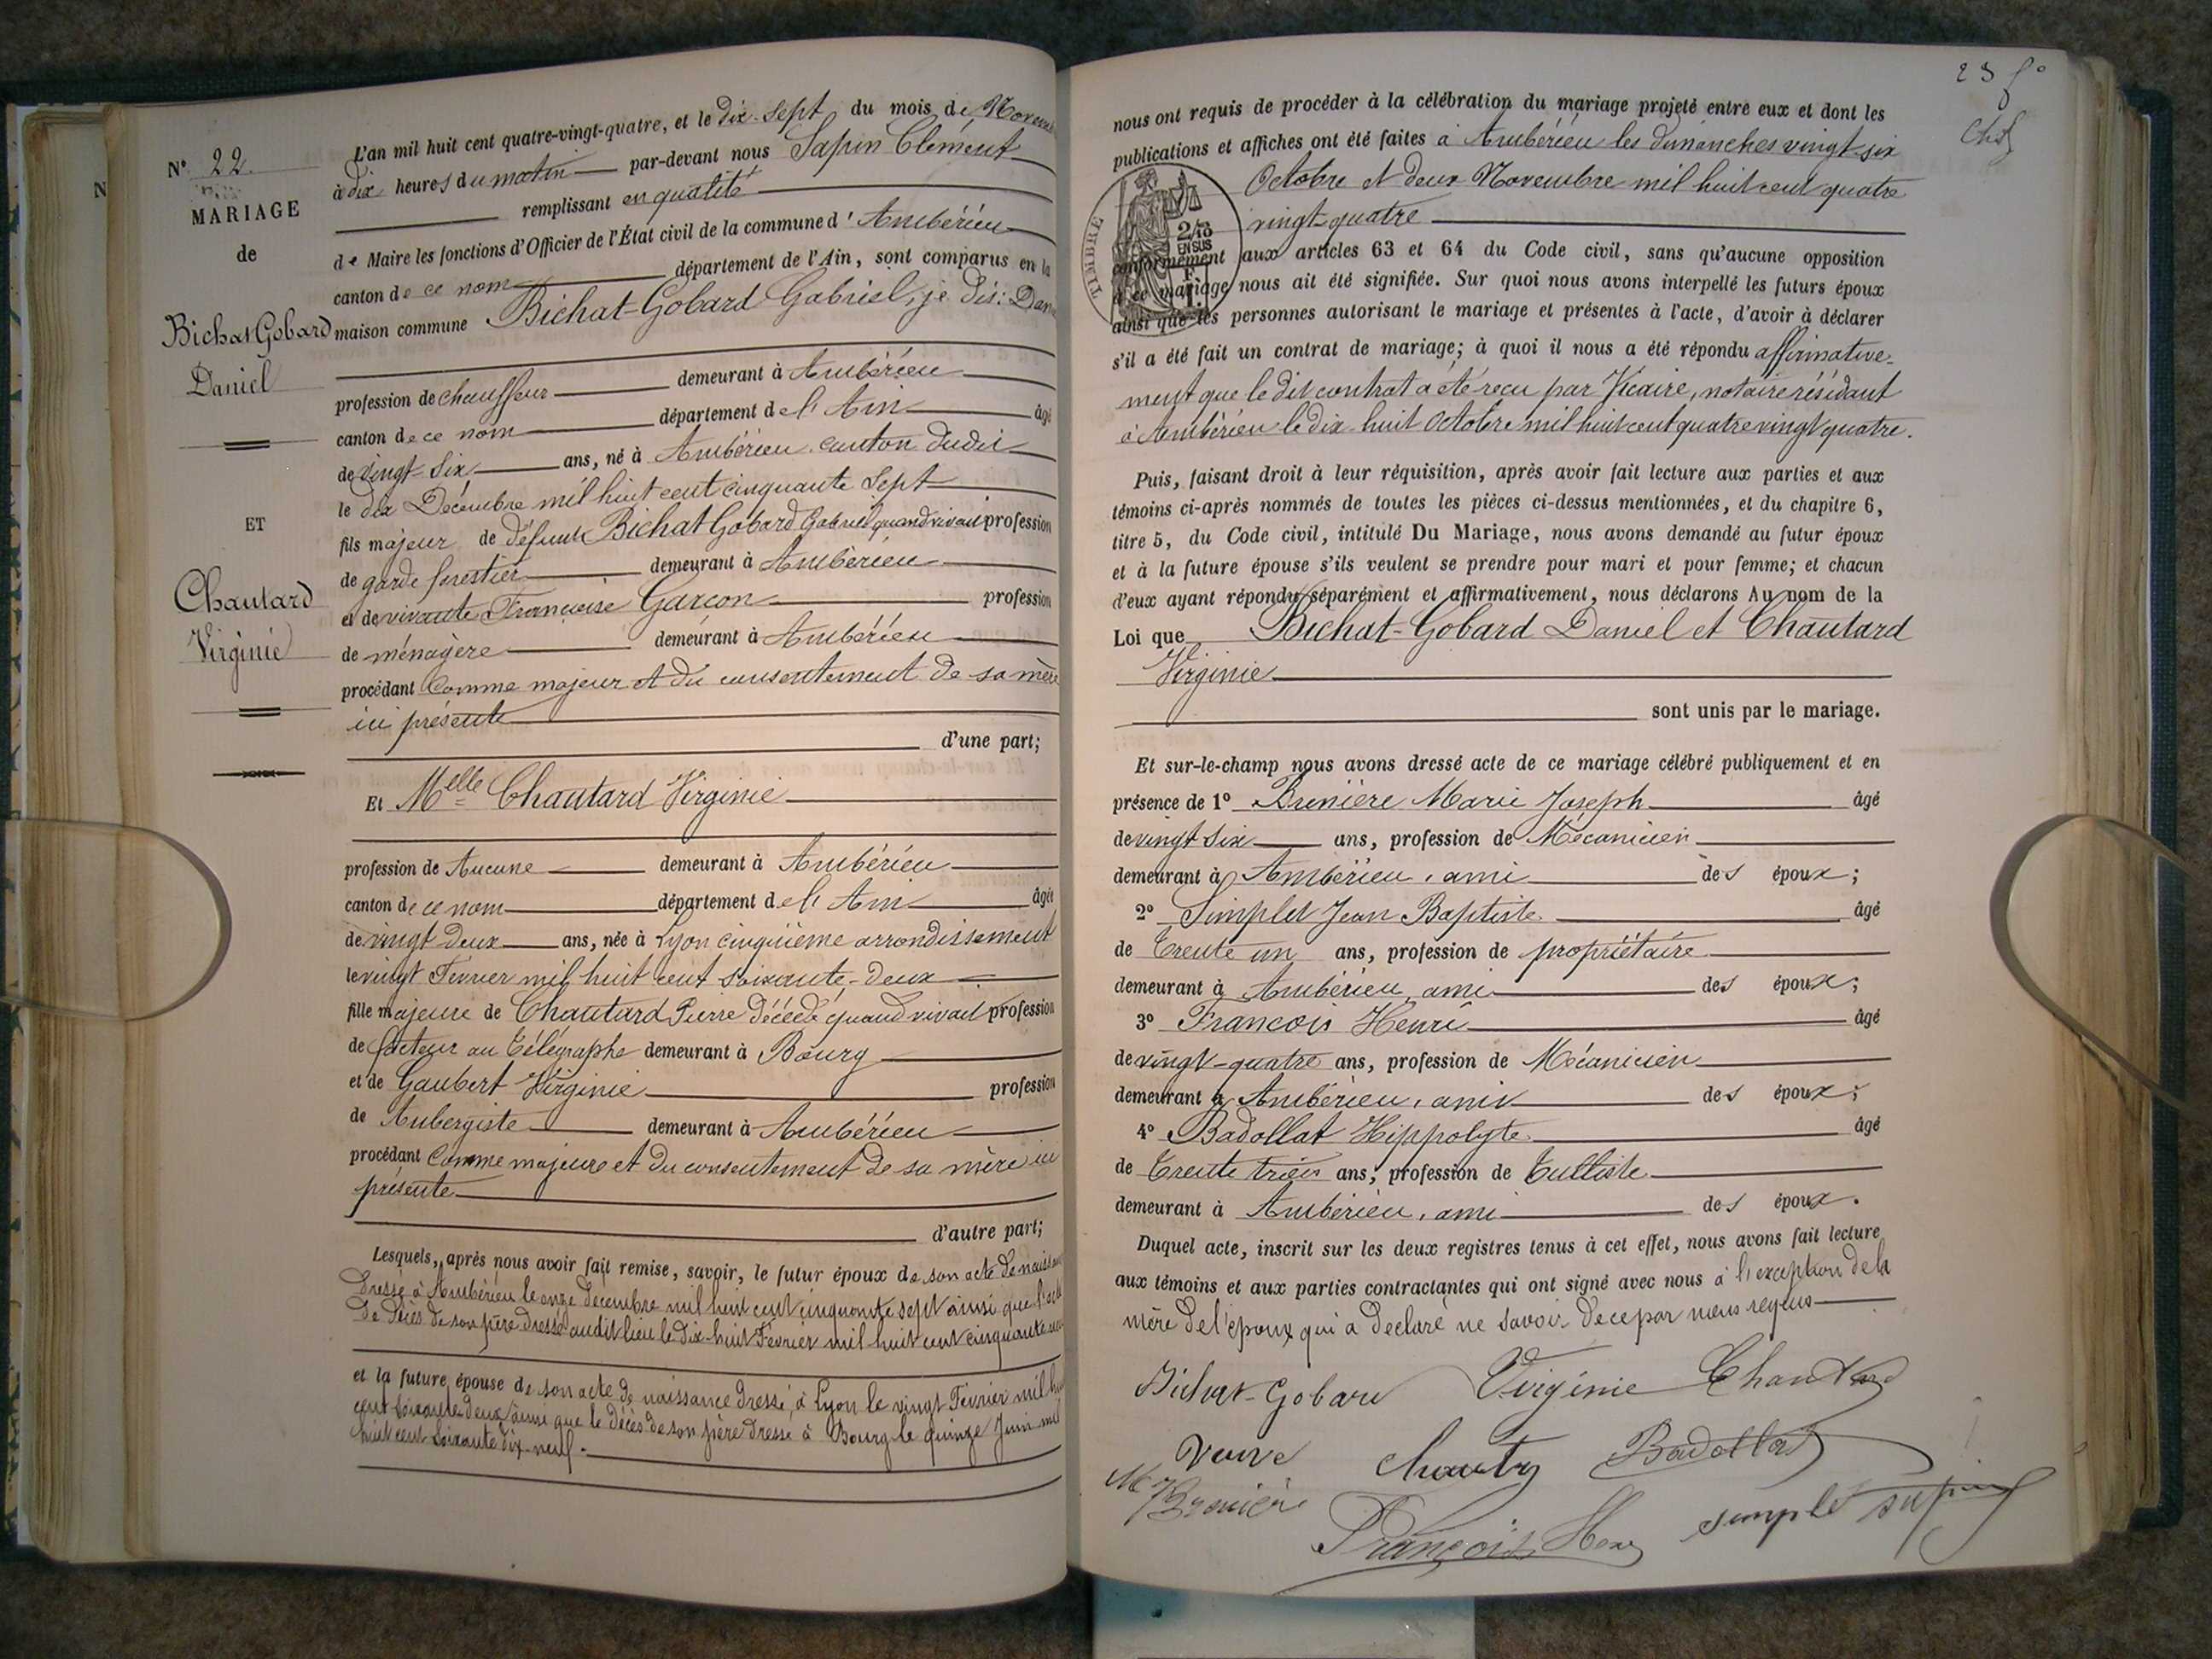 N
N° 22
MARIAGE
de
Bichat Gobard
Daniel
ET
Chautard
Virginie
L'an mil huit cent quatre-vingt-quatre, et le dix-sept du mois de Novem
à dix heures du matin par-devant nous Sapin Clément
remplissant en qualité
de Maire les fonctions d'Officier de l'État civil de la commune d'Ambérieu
canton de ce nom département de l'Ain, sont comparus en la
maison commune Bichat-Gobard Gabriel, je dis: Dan
profession de chauffeur demeurant à Ambérieu
canton de ce nom département de l'Ain âgé
de vingt-six ans, né à Ambérieu canton dudit
le dix Décembre mil huit cent cinquante sept
fils majeur de défunt Bichat Gobard Gabriel quand vivait profession
de garde forestier demeurant à Ambérieu
et de vivante Françoise Garçon profession
de ménagère demeurant à Ambérieu
procédant comme majeur et du consentement de sa mère
ici présente
d'une part;
Et Melle Chautard Virginie
profession de Aucune demeurant à Ambérieu
canton de ce nom département de l'Ain âgée
de vingt deux ans, née à Lyon cinquième arrondissement
le vingt Février mil huit cent soixante-deux
fille majeure de Chautard Pierre décédé quand vivait profession
de facteur au télégraphe demeurant à Bourg
et de Gaubert Virginie profession
de Aubergiste demeurant à Ambérieu
procédant comme majeure et du consentement de sa mère ici
présente
d'autre part;
Lesquels, après nous avoir fait remise, savoir, le futur époux de son acte de naiss
dressé à Ambérieu le onze décembre mil huit cent cinquante sept ainsi que l'acte
de décès de son père dressé audit lieu le dix-huit Février mil huit cent cinquante
et la future épouse de son acte de naissance dressé à Lyon le vingt Février mil h
cent soixante deux ainsi que le décès de son père dressé à Bourg le quinze Juin mil
huit cent soixante dix-neuf.
23 f°
nous ont requis de procéder à la célébration du mariage projeté entre eux et dont les
publications et affiches ont été faites à Ambérieu les dimanches vingt six
Octobre et deux Novembre mil huit cent quatre
vingt-quatre
TIMBRE
2/10
EN SUS
conformément aux articles 63 et 64 du Code civil, sans qu'aucune opposition
à ce mariage nous ait été signifiée. Sur quoi nous avons interpellé les futurs époux
ainsi que les personnes autorisant le mariage et présentes à l'acte, d'avoir à déclarer
s'il a été fait un contrat de mariage; à quoi il nous a été répondu affirmative-
ment que le dit contrat a été reçu par Vicaire, notaire résidant
à Ambérieu le dix-huit Octobre mil huit cent quatre vingt quatre.
Puis, faisant droit à leur réquisition, après avoir fait lecture aux parties et aux
témoins ci-après nommés de toutes les pièces ci-dessus mentionnées, et du chapitre 6,
titre 5, du Code civil, intitulé Du Mariage, nous avons demandé au futur époux
et à la future épouse s'ils veulent se prendre pour mari et pour femme; et chacun
d'eux ayant répondu séparément et affirmativement, nous déclarons Au nom de la
Loi que Bichat-Gobard Daniel et Chautard
Virginie
sont unis par le mariage.
Et sur-le-champ nous avons dressé acte de ce mariage célébré publiquement et en
présence de 1° Brenière Marie Joseph âgé
de vingt six ans, profession de Mécanicien
demeurant à Ambérieu, ami des époux;
2° Simplet Jean Baptiste âgé
de trente un ans, profession de propriétaire
demeurant à Ambérieu ami des époux;
3° François Henri âgé
de vingt-quatre ans, profession de Mécanicien
demeurant à Ambérieu, ami des époux;
4° Badollat Hippolyte âgé
de trente trois ans, profession de Tulliste
demeurant à Ambérieu, ami des époux.
Duquel acte, inscrit sur les deux registres tenus à cet effet, nous avons fait lecture
aux témoins et aux parties contractantes qui ont signé avec nous à l'exception de la
mère de l'époux qui a déclaré ne savoir de ce par nous requis
Bichat-Gobard Virginie Chautard
Veuve Badollat
M J Brenière
François Henri simplet sapin